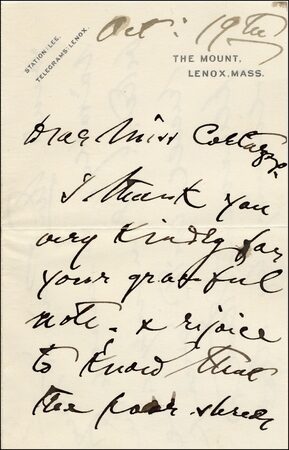 Oct: 19th
STATION: LEE.
TELEGRAMS: LENOX.
THE MOUNT,
LENOX, MASS.
Dear Miss
I thank you
very kindly for
your grateful
note, & rejoice
to know that
the poor